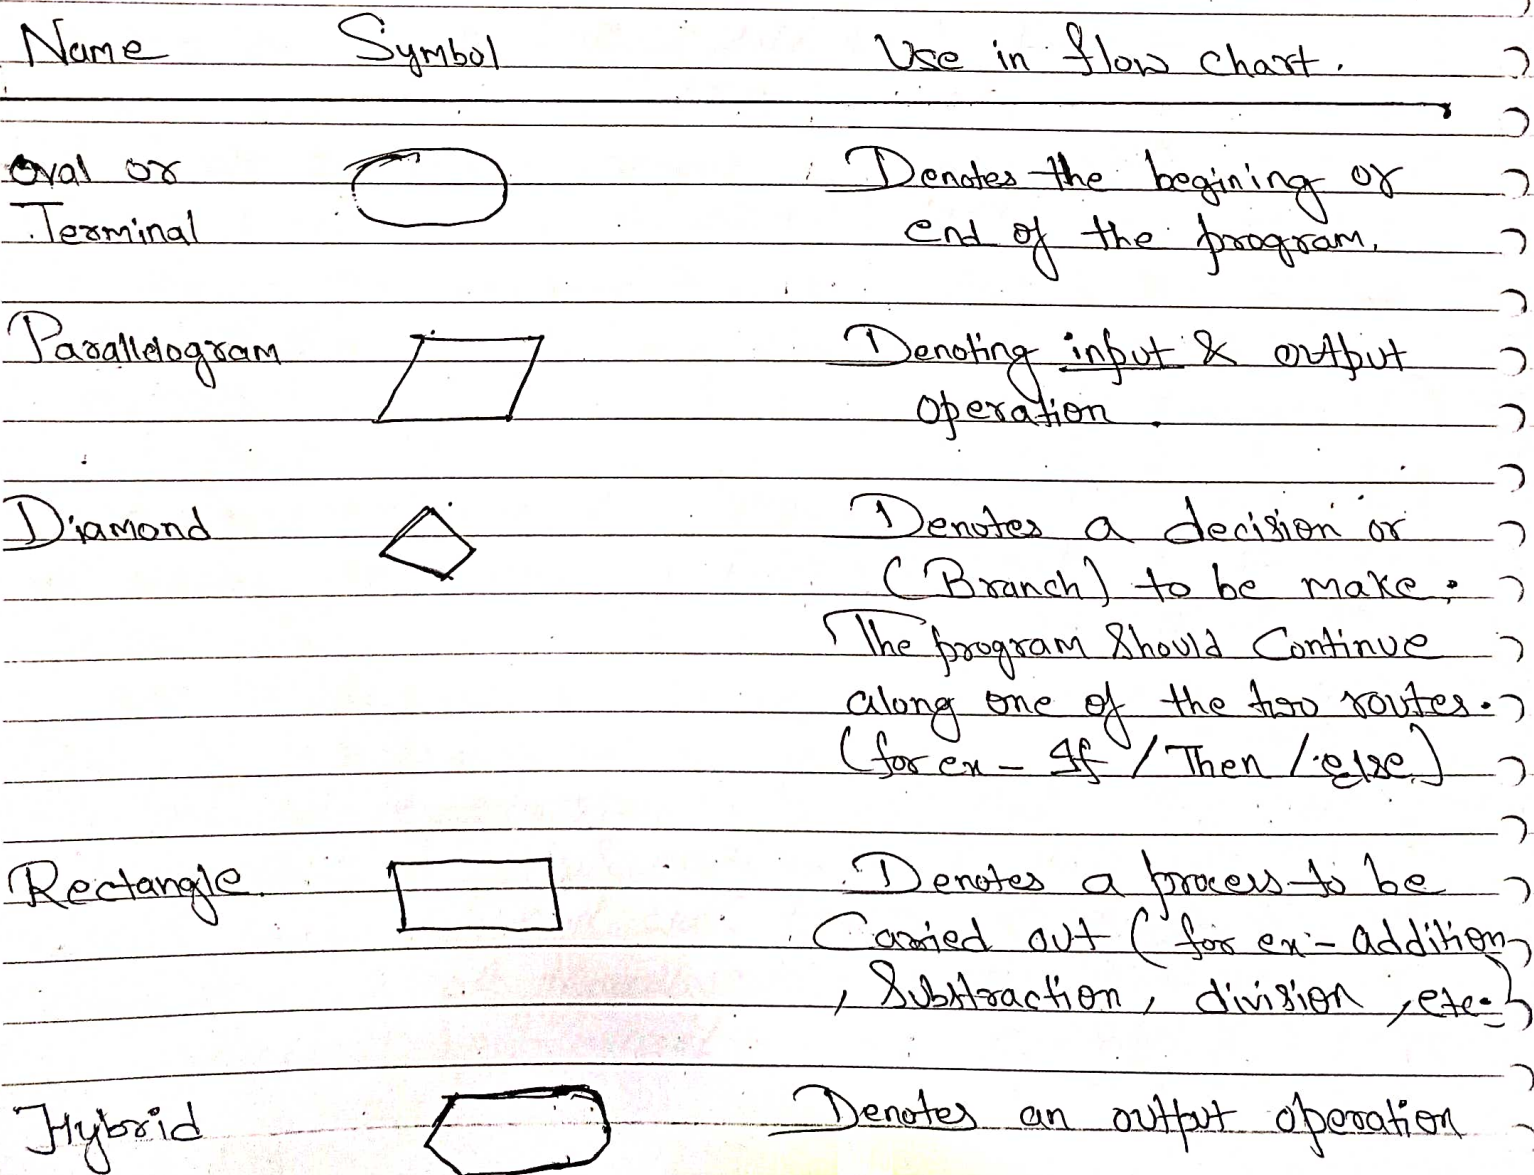 Name Symbol Use in flow chart.
Oval or Denotes the begining or
Terminal end of the program.
Parallelogram Denoting input & output
operation.
Diamond Denotes a decision or
(Branch) to be make;
The program should Continue
along one of the two routes.
(for ex - If / Then / else)
Rectangle Denotes a process to be
Carried out (for ex:- addition
, Substraction, division, etc.)
Hybrid Denotes an output operation